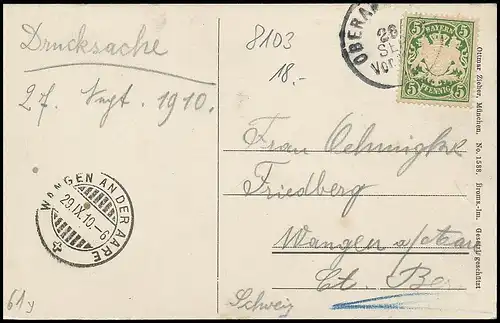 Drucksache
27. Sept. 1910.
8103
18.-
OBERA
26
SE
Vor
BAYERN
5 5
PFENNIG
5 5
Ottmar Zieher, München. No. 1588. Broms.-Im. Gesetzl. geschützt
Frau Oehmigke
Friedberg
Wangen a/Aare
Ct. Ber
Schweiz
WANGEN AN DER AARE
29.IX.10.-6
61y